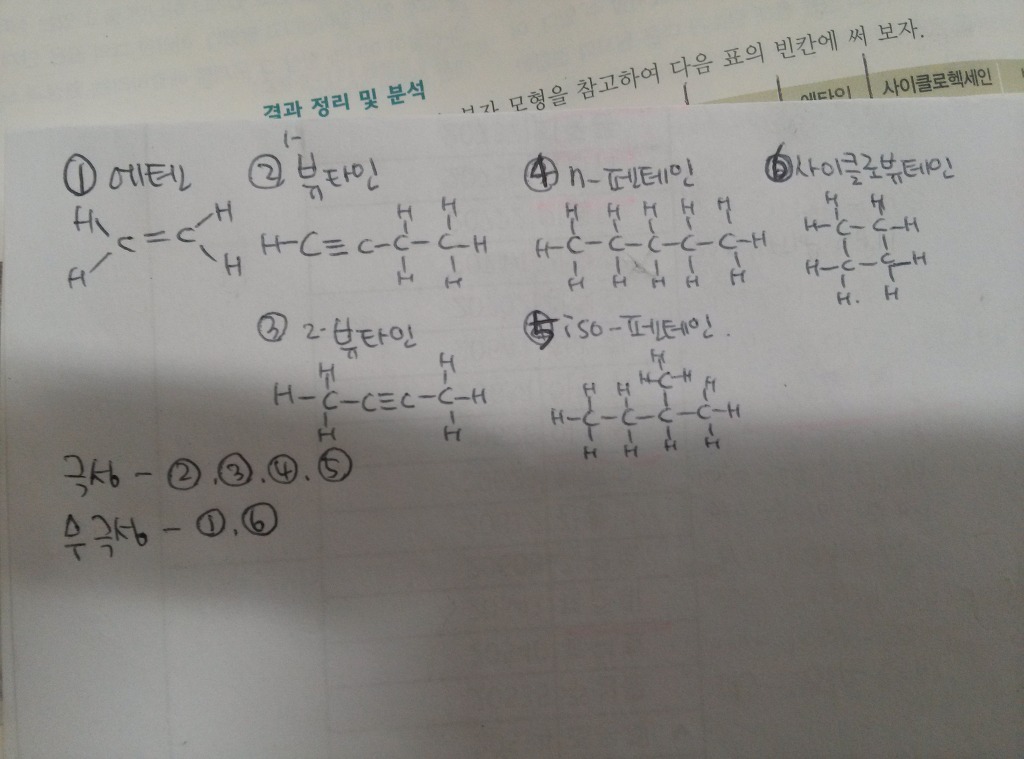 결과 정리 및 분석
모형을 참고하여 다음 표의 빈칸에 써 보자.
에타인 사이클로헥세인
① 에텐
② 1-뷰타인
④ n-펜테인
⑥ 사이클로뷰테인
H H
C=C
H H
H H
H-C≡C-C-C-H
H H
H H H H H
H-C-C-C-C-C-H
H H H H H
H H
H-C-C-H
H-C-C-H
H. H
③ 2-뷰타인
⑤ iso-펜테인.
H H
H-C-C≡C-C-H
H H
H
H H H-C-H H
H-C-C-C-C-H
H H H H
극성 - ②.③.④.⑤
무극성 - ①.⑥